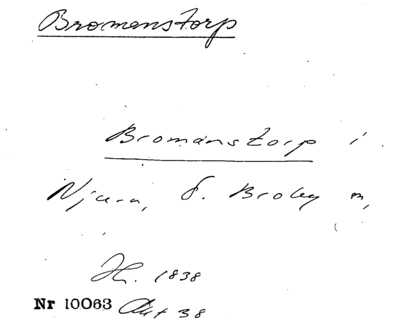 Bromanstorp
Bromanstorp i
Njura, S. Broby sn,
Jk. 1838
Nr 10063 Akt 38